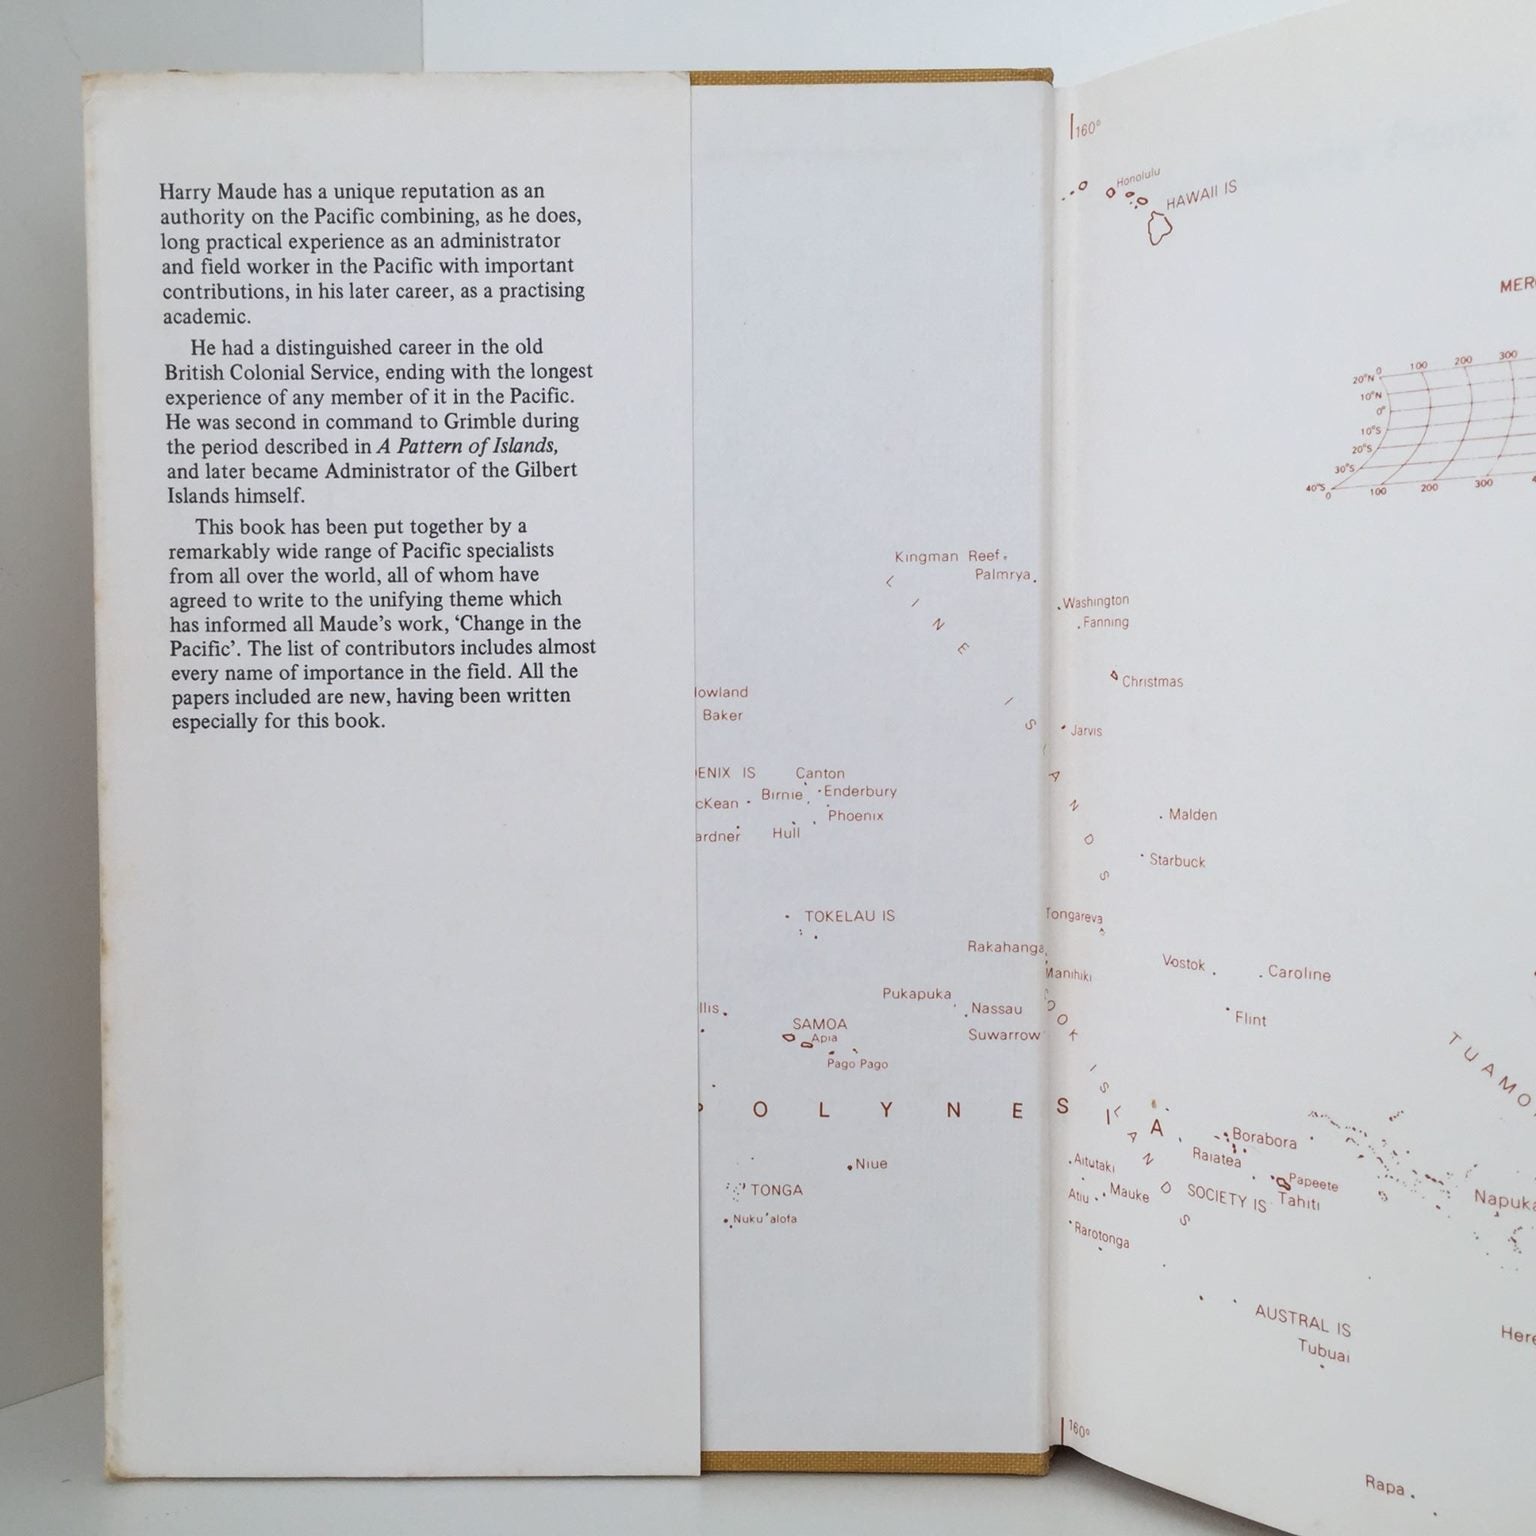 Harry Maude has a unique reputation as an
authority on the Pacific combining, as he does,
long practical experience as an administrator
and field worker in the Pacific with important
contributions, in his later career, as a practising
academic.
He had a distinguished career in the old
British Colonial Service, ending with the longest
experience of any member of it in the Pacific.
He was second in command to Grimble during
the period described in A Pattern of Islands,
and later became Administrator of the Gilbert
Islands himself.
This book has been put together by a
remarkably wide range of Pacific specialists
from all over the world, all of whom have
agreed to write to the unifying theme which
has informed all Maude's work, 'Change in the
Pacific'. The list of contributors includes almost
every name of importance in the field. All the
papers included are new, having been written
especially for this book.
Kingman Reef
Palmrya
LINE ISLANDS
lowland
Baker
ENIX IS
Canton
cKean
Birnie
Enderbury
Phoenix
ardner
Hull
TOKELAU IS
Rakahanga
Pukapuka
Nassau
llis
SAMOA
Apia
Suwarrow
Pago Pago
POLYNESIA
Niue
TONGA
Nuku'alofa
160°
Honolulu
HAWAII IS
MER
0 100 200 300
20°N
10°N
0°
10°S
20°S
30°S
40°S
0 100 200 300 4
Washington
Fanning
Christmas
Jarvis
Malden
Starbuck
Tongareva
Vostok
Caroline
Manihiki
Flint
COOK ISLANDS
TUAMO
Borabora
Raiatea
Aitutaki
Papeete
Atiu
Mauke
SOCIETY IS
Tahiti
Napuka
Rarotonga
AUSTRAL IS
Tubuai
Here
160°
Rapa